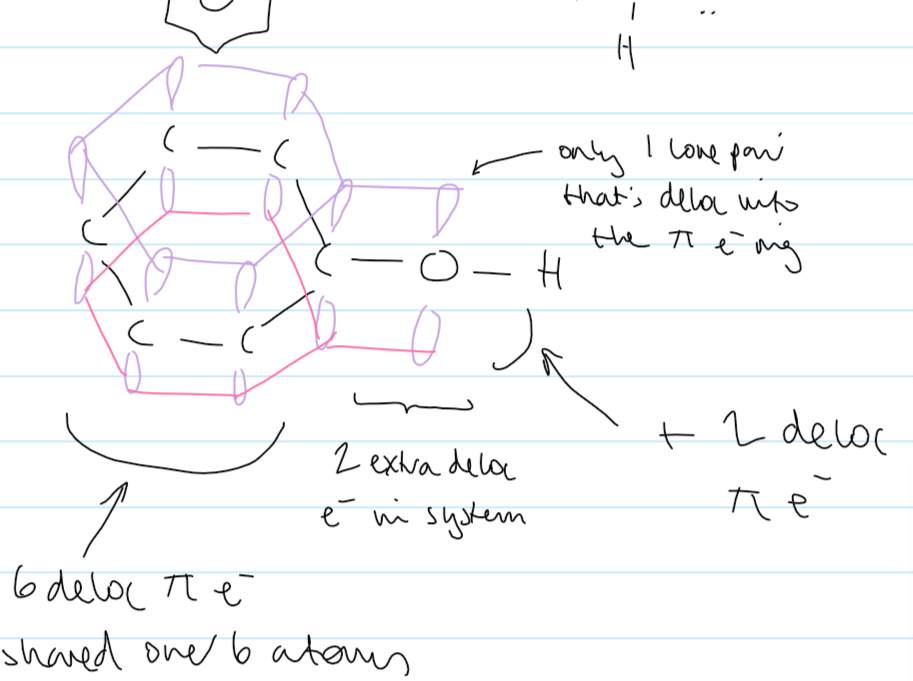 H
only 1 lone pair
that's deloc into
the π e⁻ ring
C — C
C
C — O — H
C — C
+ 2 deloc
π e⁻
2 extra deloc
e⁻ in system
6 deloc π e⁻
shared over 6 atoms